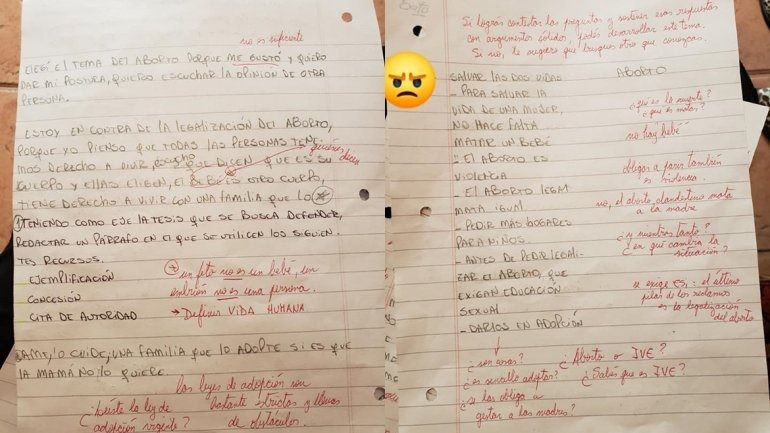 no es suficiente
ELEGÍ EL TEMA DEL ABORTO PORQUE ME GUSTÓ Y QUIERO
DAR MI POSTURA, QUIERO ESCUCHAR LA OPINIÓN DE OTRA
PERSONA.
ESTOY EN CONTRA DE LA LEGALIZACIÓN DEL ABORTO,
PORQUE YO PIENSO QUE TODAS LAS PERSONAS TENE-
MOS DERECHO A VIVIR, ESCUCHO QUE DICEN QUE ES SU
quiénes dicen
CUERPO Y ELLAS ELIGEN, EL BEBÉ ES OTRO CUERPO,
TIENE DERECHO A VIVIR CON UNA FAMILIA QUE LO
① TENIENDO COMO EJE LA TESIS QUE SE BUSCA DEFENDER,
REDACTAR UN PÁRRAFO EN EL QUE SE UTILICEN LOS SIGUIEN-
TES RECURSOS.
EJEMPLIFICACIÓN
CONCESIÓN
CITA DE AUTORIDAD
un feto no es un bebé, un
embrión no es una persona.
→ Definir VIDA HUMANA
AME, LO CUIDE, UNA FAMILIA QUE LO ADOPTE SI ES QUE
LA MAMÁ NO LO QUIERE.
Las leyes de adopción son
bastante estrictas y llenas
de obstáculos.
¿Leíste la ley de
adopción urgente?
Si lográs contestar las preguntas y sostener esas respuestas
con argumentos sólidos, podés desarrollar este tema.
Si no, te sugiero que busques otro que conozcas.
SALVAR LAS DOS VIDAS
ABORTO
- PARA SALVAR LA
VIDA DE UNA MUJER,
NO HACE FALTA
MATAR UN BEBÉ
¿qué es la muerte?
¿qué es matar?
no hay bebé
- EL ABORTO ES
VIOLENCIA
obligar a parir también
es violencia.
- EL ABORTO LEGAL
MATA IGUAL
no, el aborto clandestino mata
a la madre
- PEDIR MÁS HOGARES
PARA NIÑOS.
¿y mientras tanto?
¿en qué cambia la
situación?
- ANTES DE PEDIR LEGALI-
ZAR EL ABORTO, QUE
EXIGAN EDUCACIÓN
SEXUAL
se exige es: el último
pilar de los reclamos
es la legalización
del aborto
- DARLOS EN ADOPCIÓN
¿son cosas?
¿es sencillo adoptar?
¿se las obliga a
gestar a las madres?
¿Aborto o IVE?
¿Sabés qué es IVE?